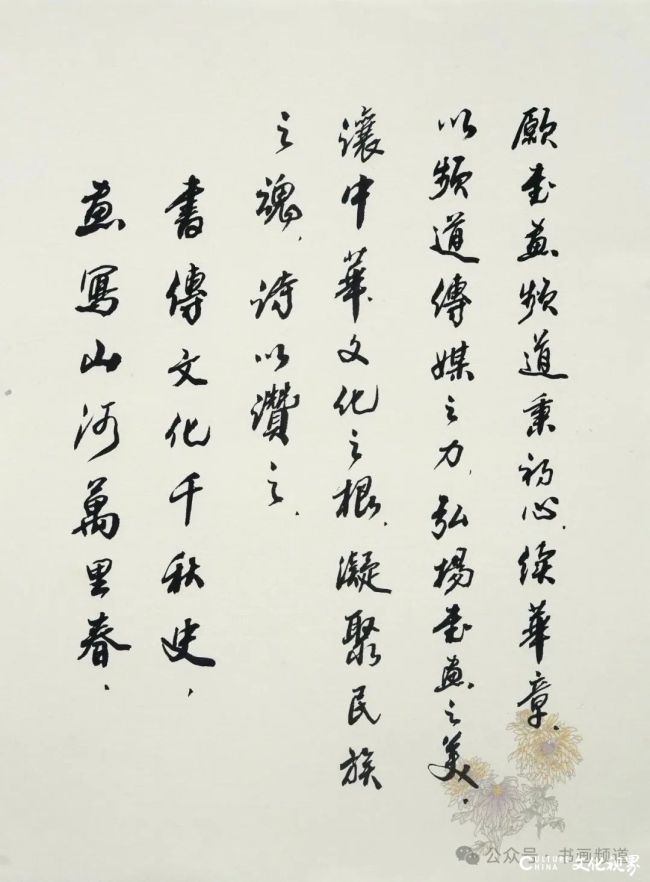 願書畫頻道秉初心,續華章.
以頻道傳媒之力,弘揚書畫之美.
讓中華文化之根.凝聚民族
之魂,诗以讚之.
書傳文化千秋史,
畫寫山河萬里春.
公众号 · 书画频道
CULTURE CHINA 文化视界